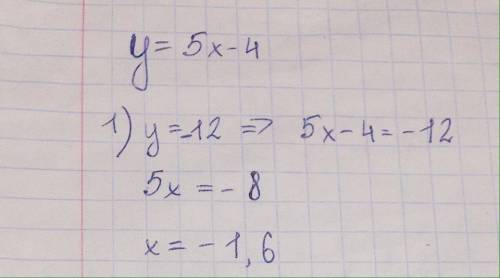 y = 5x - 4
1) y = -12 => 5x - 4 = -12
5x = - 8
x = - 1,6